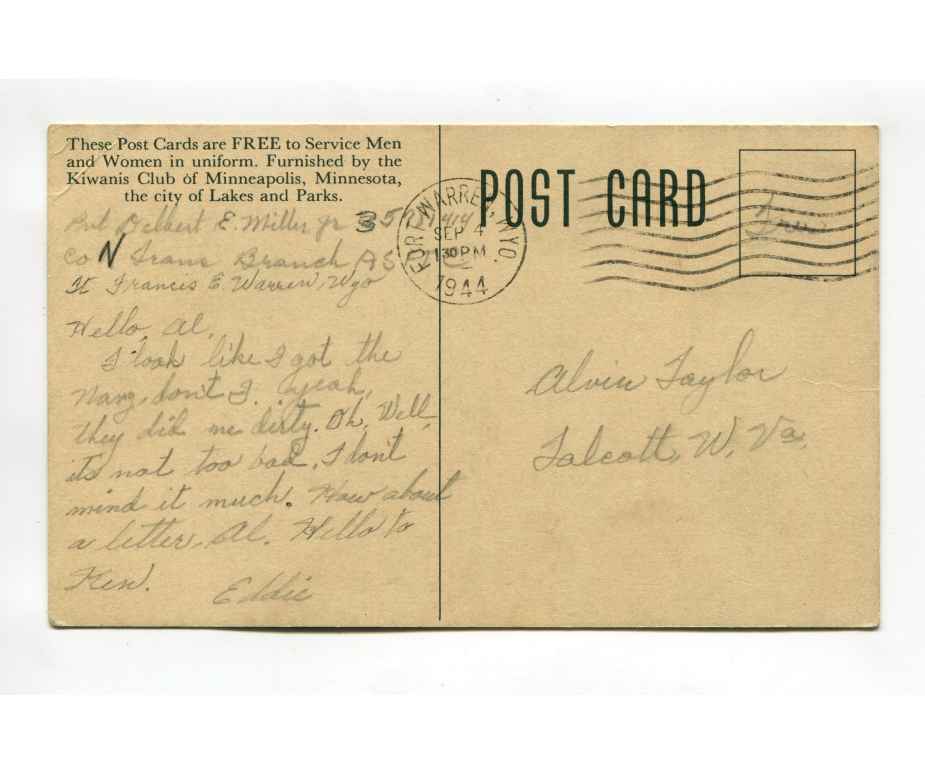 These Post Cards are FREE to Service Men
and Women in uniform. Furnished by the
Kiwanis Club of Minneapolis, Minnesota,
the city of Lakes and Parks.
Pvt Delbert E. Miller Jr 35
Co N Trans Branch AS
Ft Francis E. Warren, Wyo
Hello, Al,
I look like I got the
Navy, don't I. yeah,
they did me dirty. Oh, Well,
it's not too bad, I don't
mind it much. How about
a letter, Al. Hello to
Ken.
Eddie
POST CARD
FORT WARREN, WYO.
SEP 4
1 30 PM
1944
Free
Alvin Taylor
Talcott, W. Va.